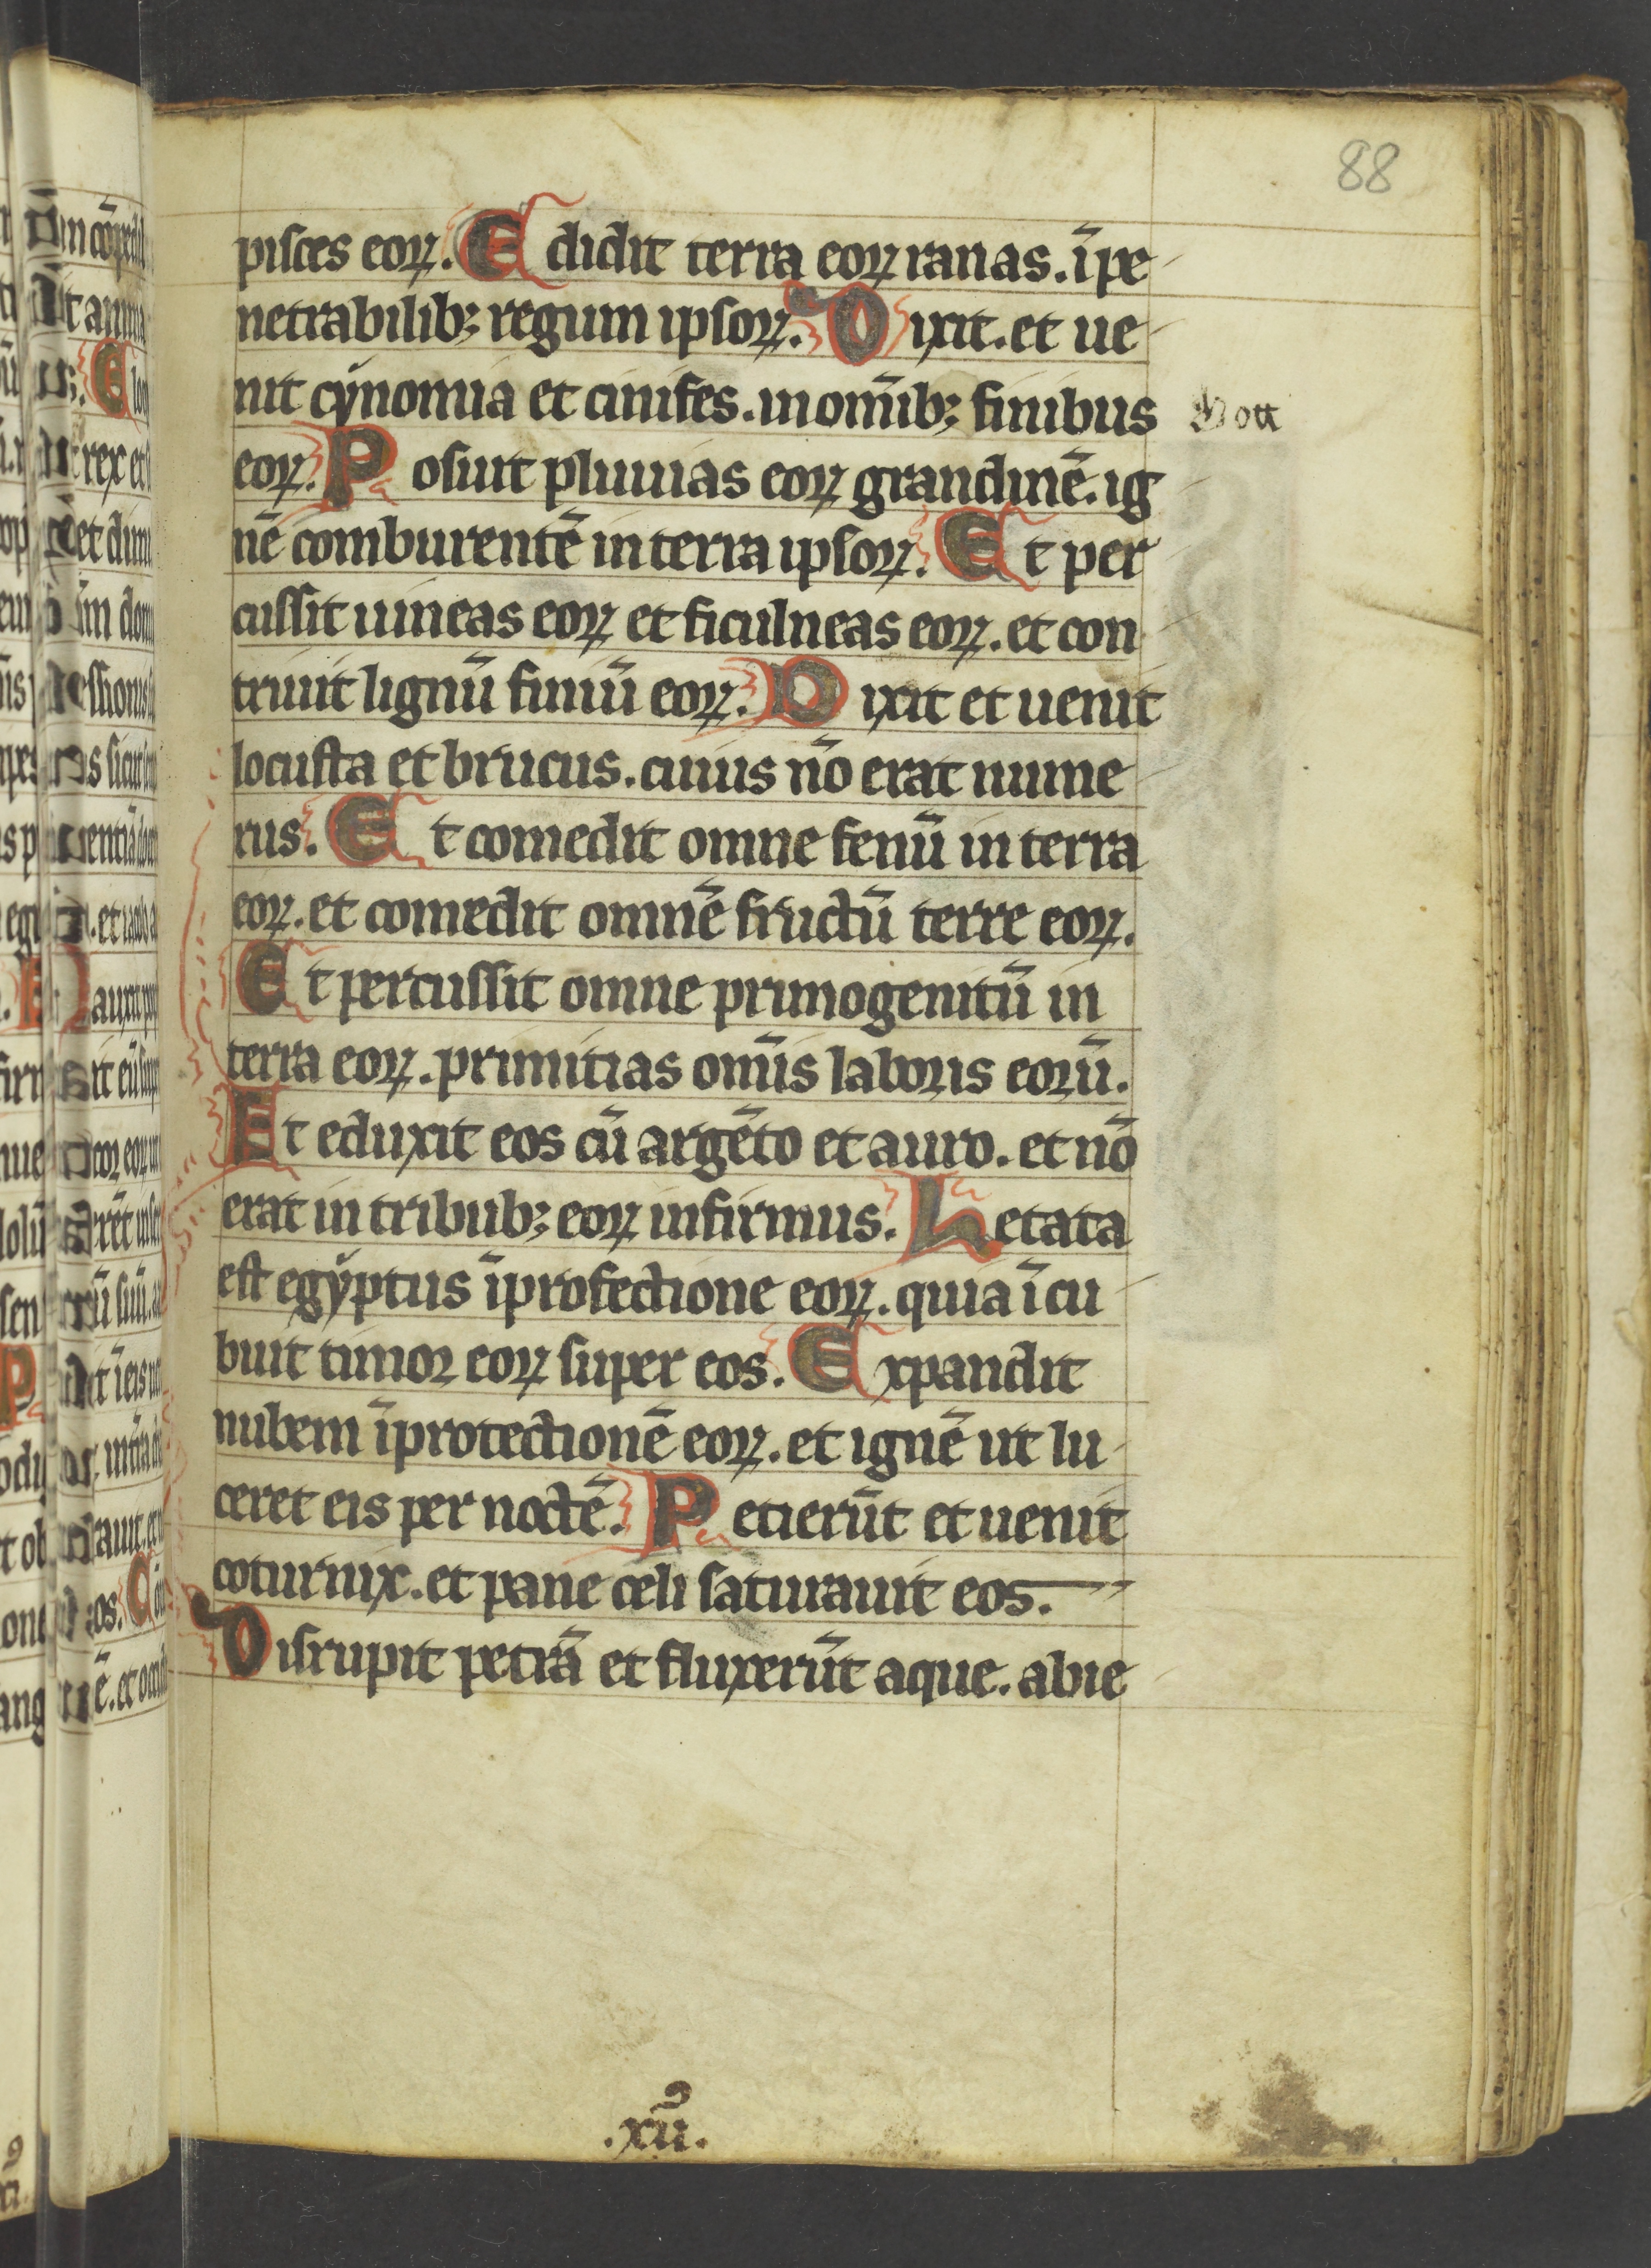 88
pisces eoꝝ. Edidit terra eoꝝ ranas. ī pe
netrabilibꝫ regum ipsoꝝ. Dixit. et ue
nit cynomia et cinifes. in omībꝫ finibus
Gott
eoꝝ. Posuit pluuias eoꝝ grandinē. ig
nē comburentē in terra ipsoꝝ. Et per
cussit uineas eoꝝ et ficulneas eoꝝ. et con
triuit lignū finiū eoꝝ. Dixit et uenit
locusta et brucus. cuius nō erat nume
rus. Et comedit omne fenū in terra
eoꝝ. et comedit omnē fructū terre eoꝝ.
Et percussit omne primogenitū in
terra eoꝝ. primitias omīs laboris eorū.
Et eduxit eos cū argēto et auro. et nō
erat in tribubꝫ eoꝝ infirmus. Letata
est egyptus ī profectione eoꝝ. quia īcu
buit timor eoꝝ super eos. Expandit
nubem ī protectionē eoꝝ. et ignē ut lu
ceret eis per noctē. Petierūt et uenit
coturnix. et pane celi saturauit eos.
Disrupit petrā et fluxerūt aque. abie
.xıı᷒.